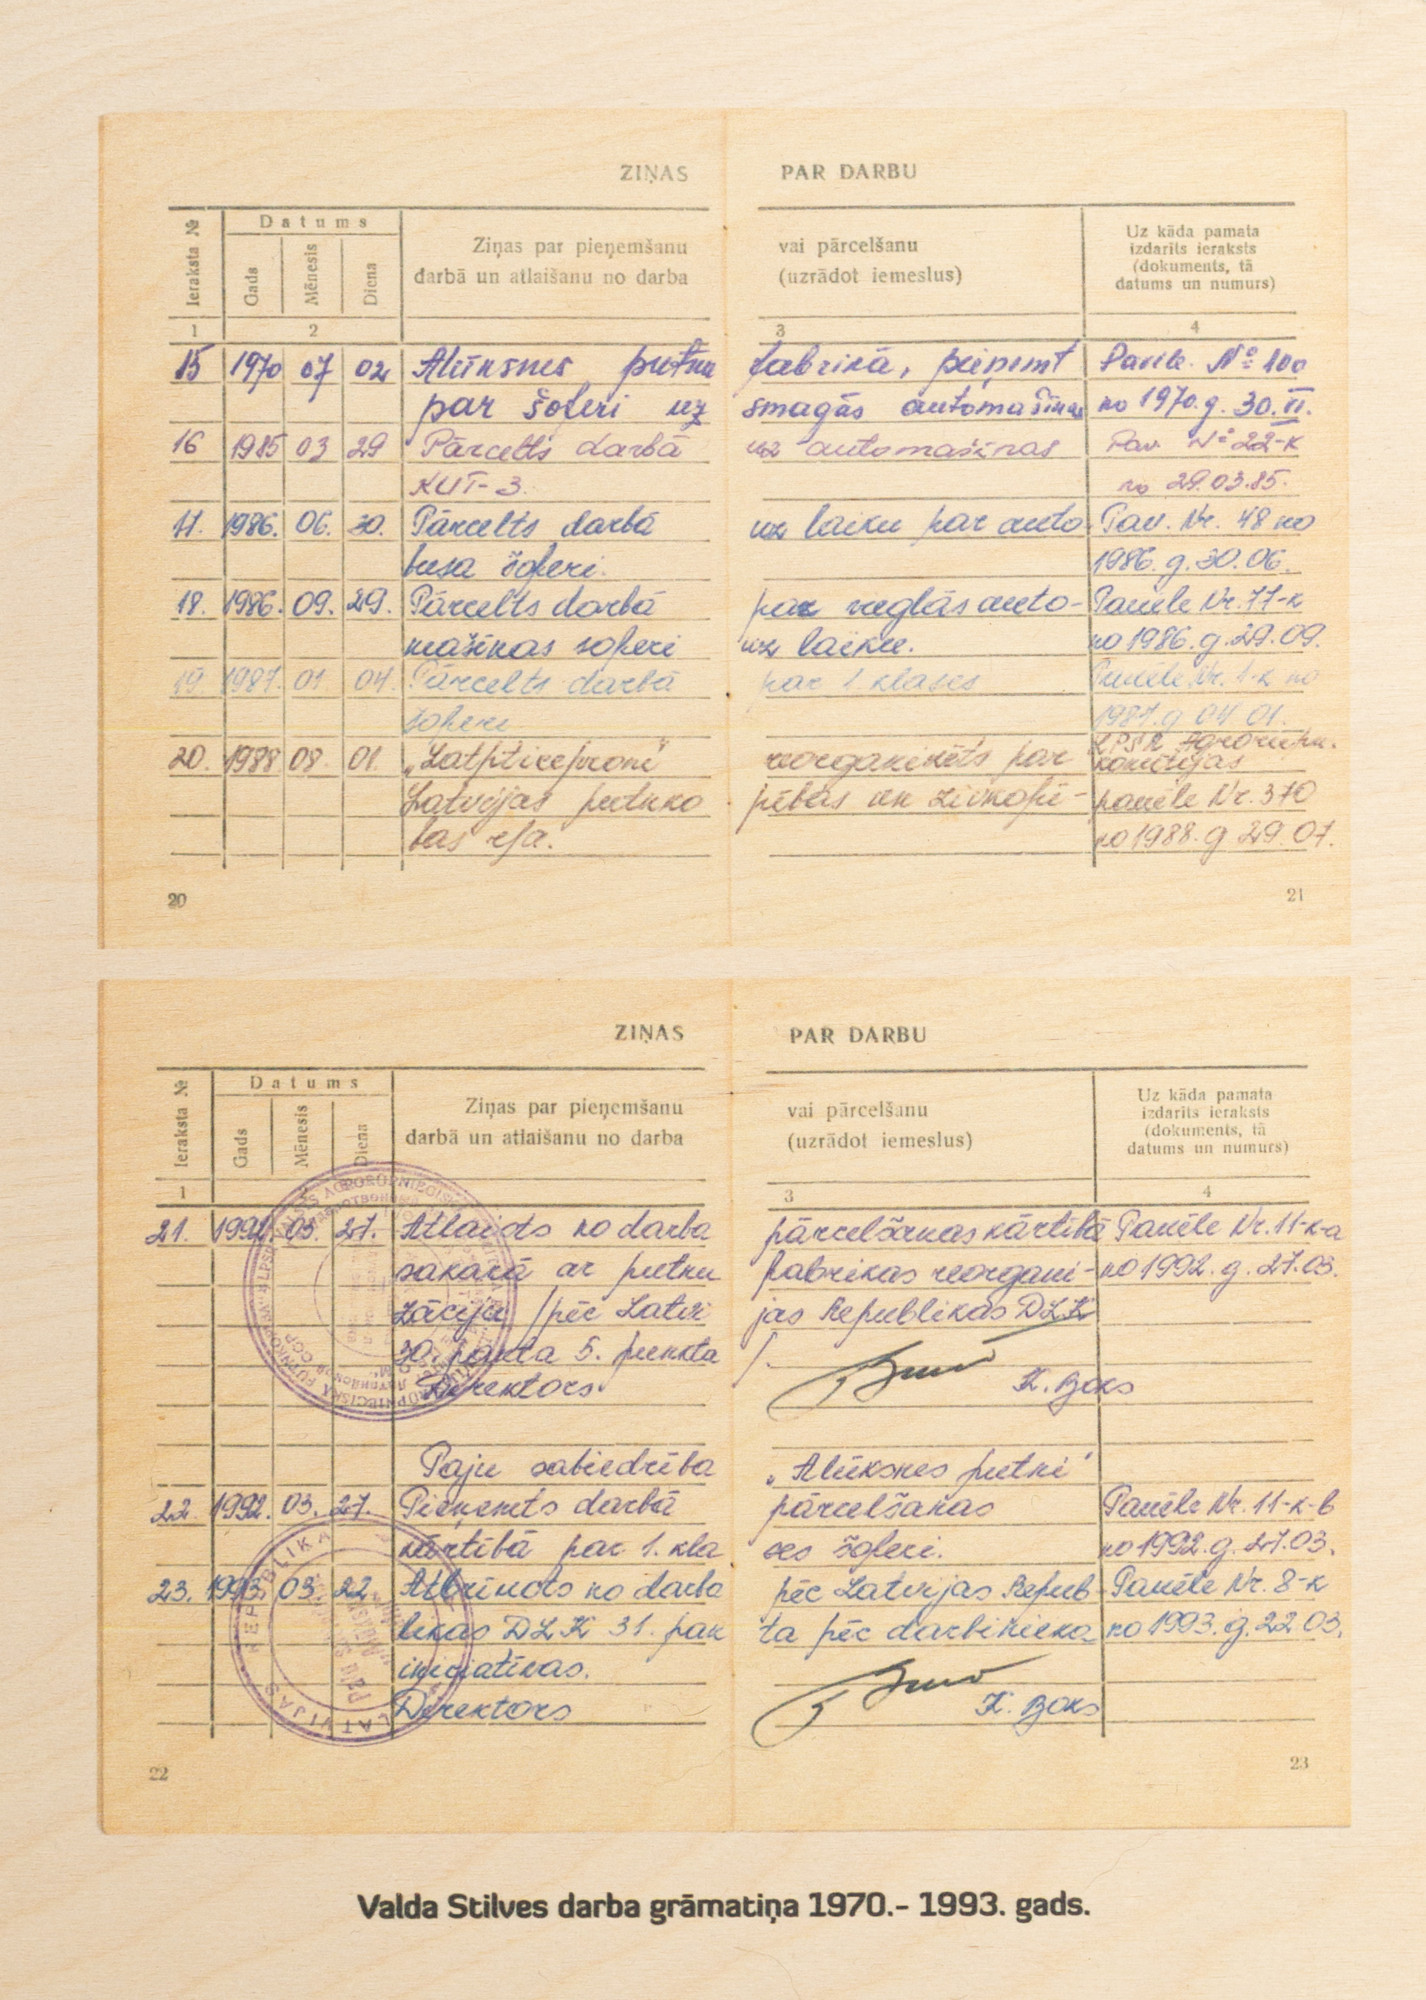 ZIŅAS PAR DARBU
Ieraksta №
Datums
Gads
Mēnesis
Diena
Ziņas par pieņemšanu vai pārcelšanu
darbā un atlaišanu no darba (uzrādot iemeslus)
Uz kāda pamata
izdarīts ieraksts
(dokuments, tā
datums un numurs)
1 2 3 4
15 1970 07 02 Alūksnes putnu fabrikā, pieņemt Pavēle № 100
par šoferi uz smagās automašīnas no 1970.g. 30.VI.
16 1985 03 29 Pārcelts darbā uz automašīnas Pav. № 22-K
KUT-3. no 29.03.85.
17. 1986. 06. 30. Pārcelts darbā uz laiku par auto Pav. Nr. 48 no
busa šoferi. 1986.g. 30.06.
18. 1986. 09. 29. Pārcelts darbā par vieglās auto- Pavēle Nr. 77-k
mašīnas šoferi uz laiku. no 1986.g. 29.09.
19. 1987. 01 04. Pārcelts darbā par 1. klases Pavēle Nr. 1-k no
šoferi 1987.g 04 01.
20. 1988 08. 01. „Latpticeprom" reorganizēts par LPSR Agrorūpn. komitejas
Latvijas putnko pības un zivkopī- pavēle Nr. 370
bas r/a. no 1988.g 29.07.
20 21
ZIŅAS PAR DARBU
Ieraksta №
Datums
Gads
Mēnesis
Diena
Ziņas par pieņemšanu vai pārcelšanu
darbā un atlaišanu no darba (uzrādot iemeslus)
Uz kāda pamata
izdarīts ieraksts
(dokuments, tā
datums un numurs)
1 3 4
21. 1992. 03. 27. Atlaists no darba pārcelšanas kārtībā Pavēle Nr. 11-k-a
sakarā ar putnu fabrikas reorgani- no 1992.g. 27.03.
zāciju /pēc Latvi jas Republikas DLK
30. panta 5. punkta /.
Direktors K. Boks
Paju sabiedrība „Alūksnes putni"
22. 1992. 03. 27. Pieņemts darbā pārcelšanas Pavēle Nr. 11-k-b
kārtībā par 1. kla ses šoferi. no 1992.g. 27.03.
23. 1993. 03. 22 Atbrīvots no darba pēc Latvijas Repub- Pavēle Nr. 8-k
likas DLK 31. pan ta pēc darbinieka no 1993.g. 22 03.
iniciatīvas.
Direktors K. Boks
LATVIJAS REPUBLIKA
22 23
Valda Stilves darba grāmatiņa 1970.- 1993. gads.